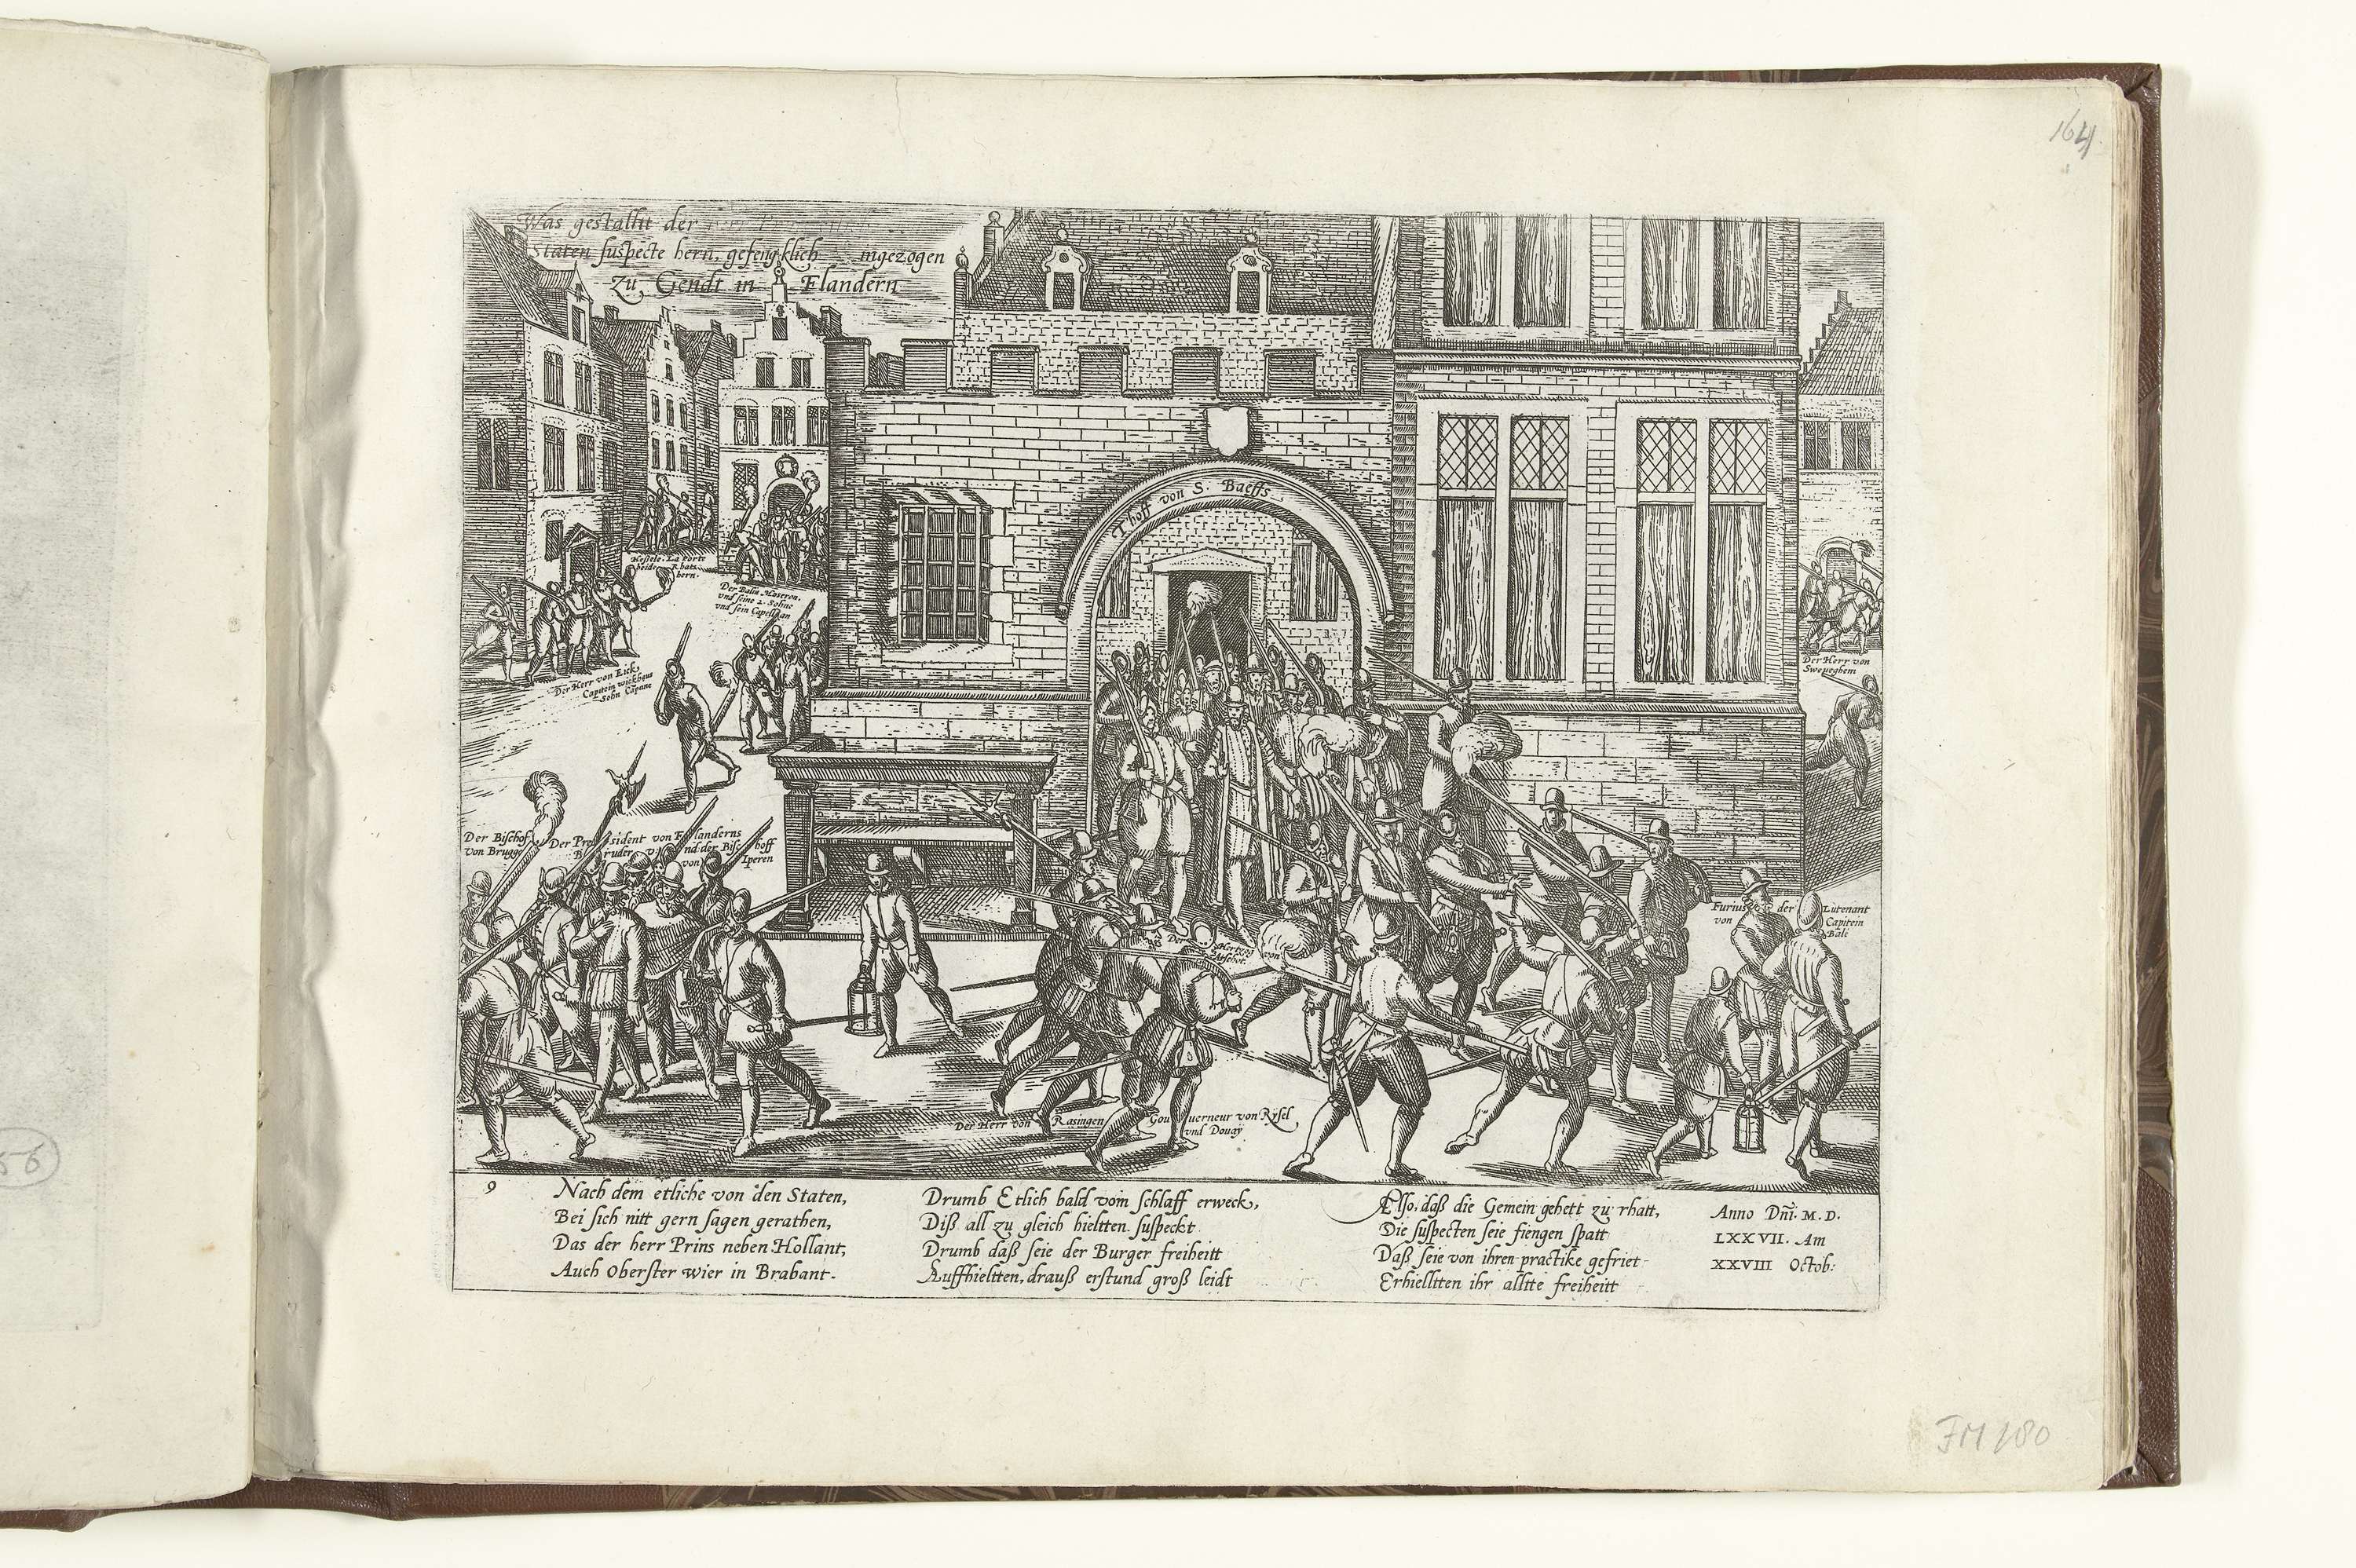 164
Was gestallt der
Staten suspecte hern, gefengklich ingezogen
Zu Gendt in Flandern
T'hoff von S. Baeffs
beide Rhats
hern.
Der Baliu Maseron,
vnd seine 2. Sohne
vnd sein Capellaan
Der Herr von Eick,
Sohn Capane
Der Herr von
Sweveghem
Der Bischof
von Brugge
Der President von Flanderns
Bruder vnd der Bischoff
von Iperen
Furius der Lutenant
von Capitein
Bali
Der Hertzog
von Arschot
Der Herr von Rasingen Gouuerneur von Rysel
vnd Douay
9
Nach dem etliche von den Staten,
Bei sich nitt gern sagen gerathen,
Das der herr Prins neben Hollant,
Auch Oberster wier in Brabant.
Drumb Etlich bald vom schlaff erweck,
Diß all zu gleich hieltten suspeckt
Drumb daß seie der Burger freiheitt
Auffhieltten, drauß erstund groß leidt
Also, daß die Gemein gehett zu rhatt,
Die suspecten seie fiengen spatt
Daß seie von ihren practike gefriet
Erhieltten ihr alltte freiheitt
Anno Dñi. M. D.
LXXVII. Am
XXVIII Octob:
56
FM 180